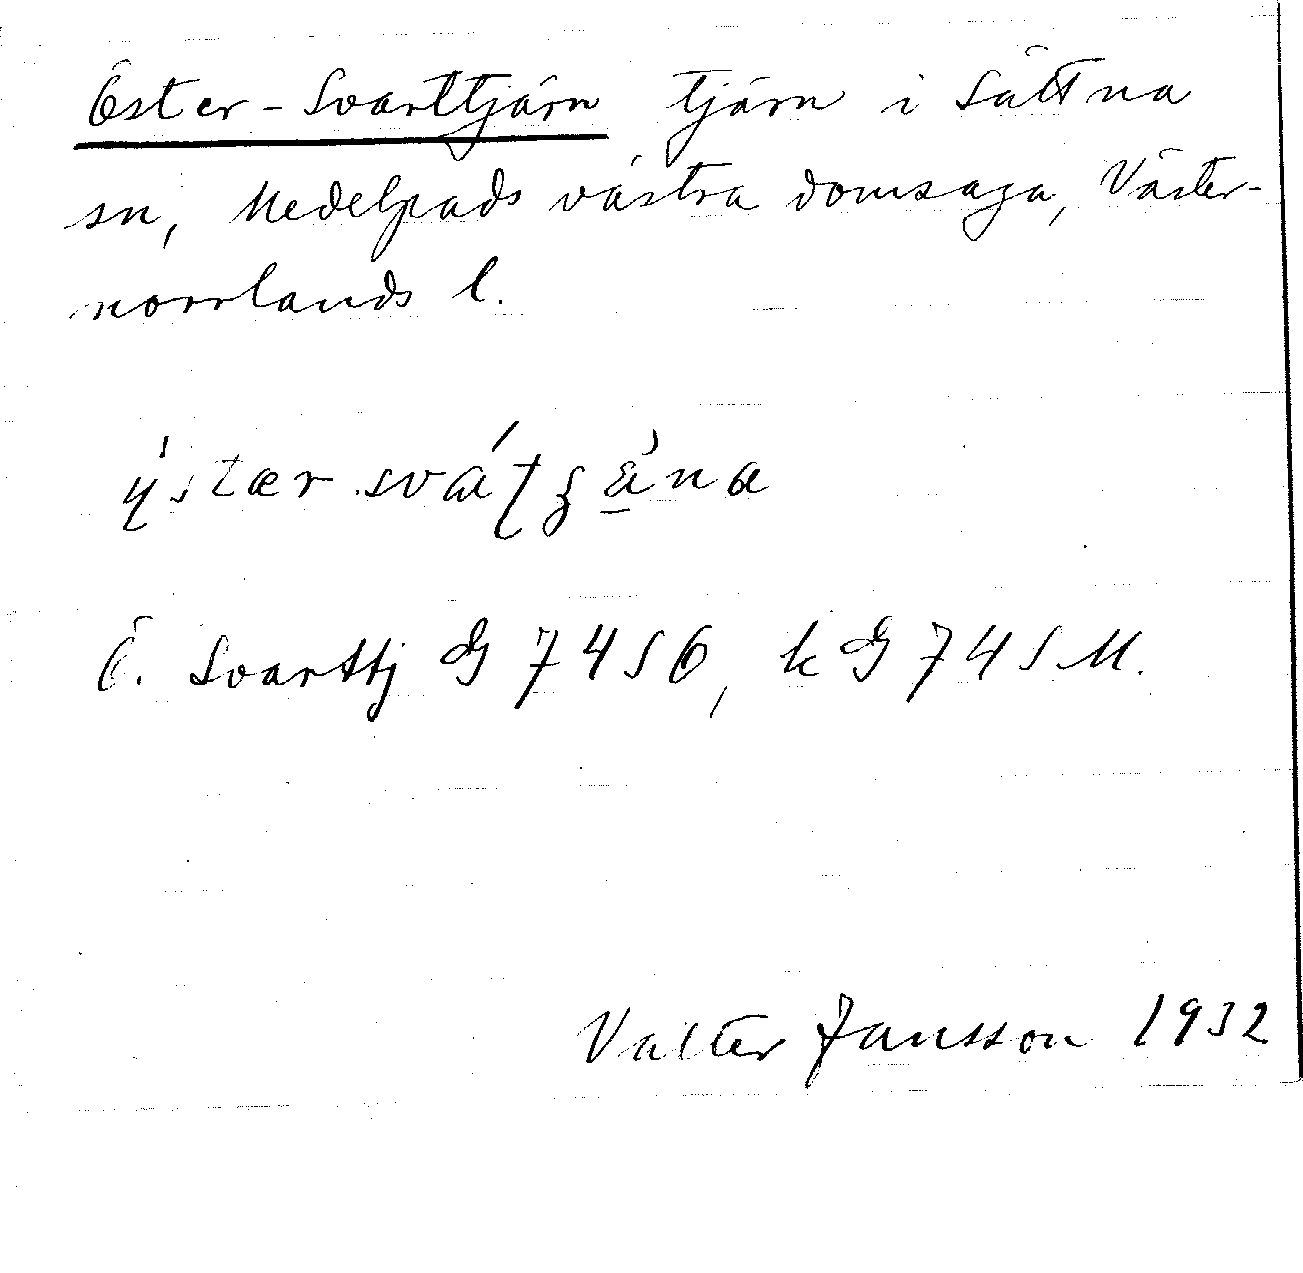 Öster-Svarttjärn tjärn i Sättna
sn, Medelpads västra domsaga, Väster-
norrlands l.
Ö. Svarttj G 7456, k G 745 M.
Valter Jansson 1932